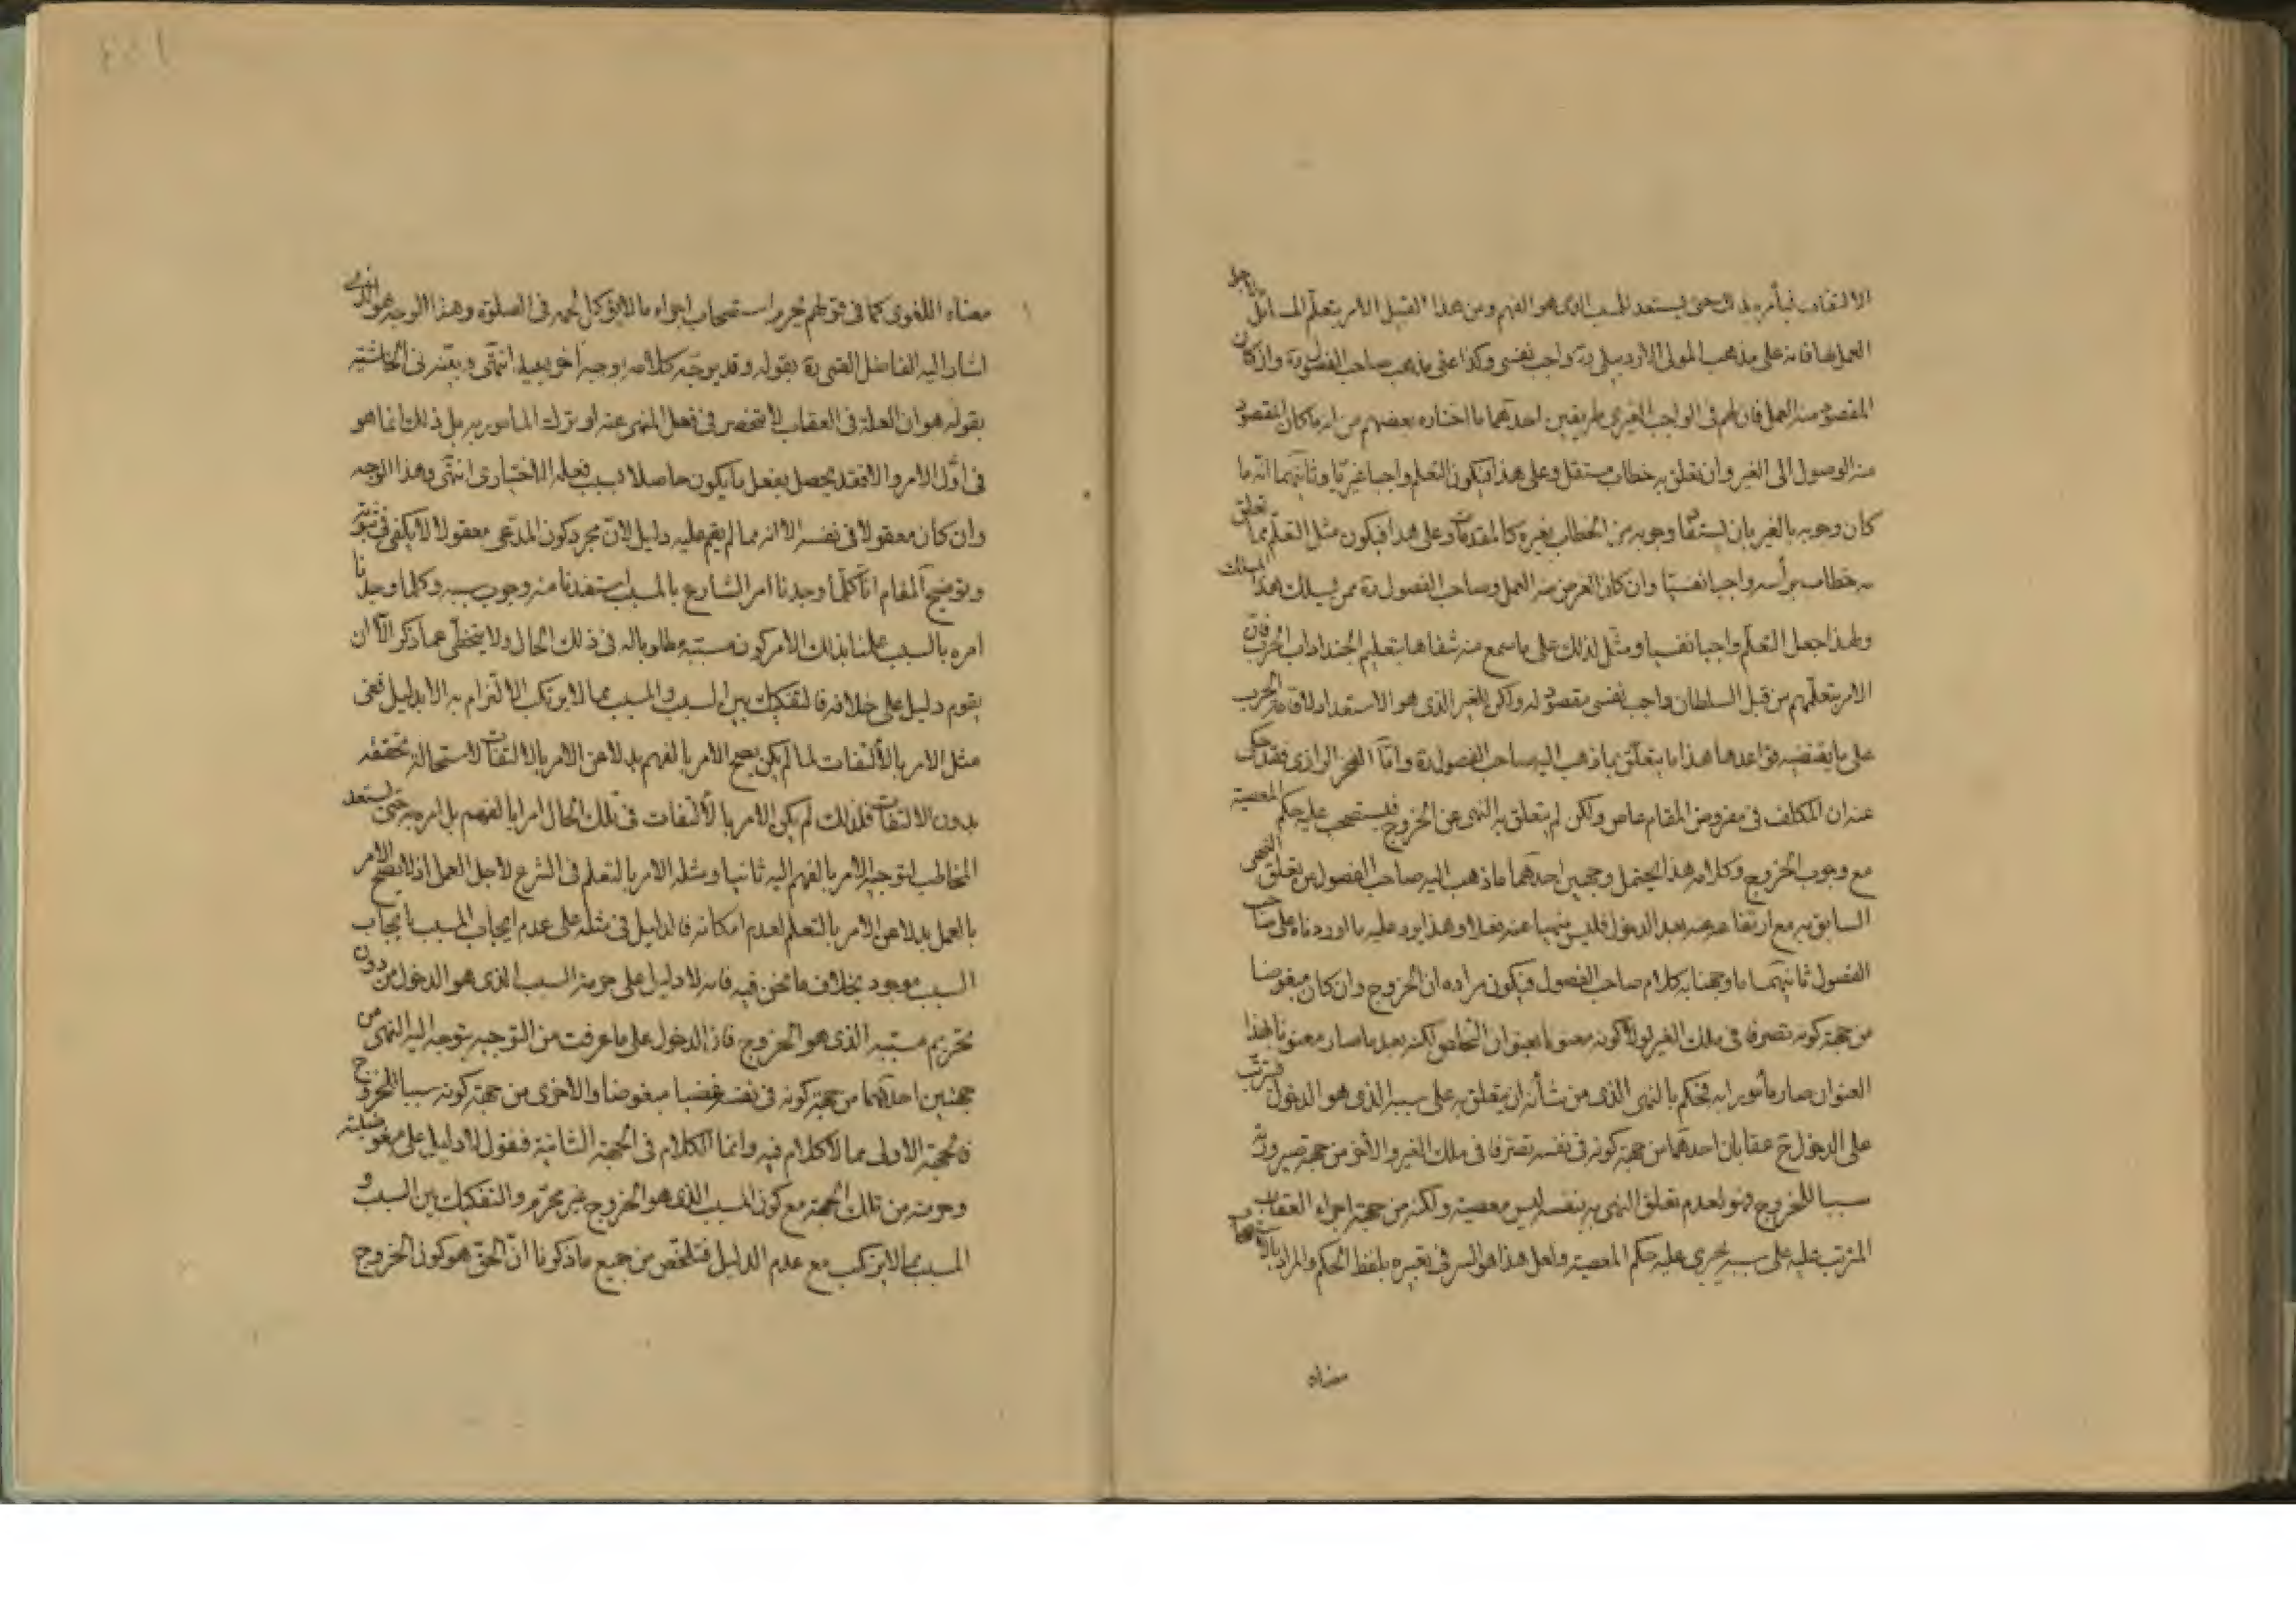 الالتفات فيأمره بذلك حتى يستعد للمسبب الذي هو الفهم ومن هذا القبيل الامر بتعلّم المسائل لاجل
العمل بها فانه على مذهب المولى الاردبيلي ره واجب نفسي وكذا على مذهب صاحب الفصول ره وان كان
المقصود منه العمل فان لهم في الواجب الغيري طريقين احدهما ما اختاره بعضهم من انه ما كان المقصود
منه الوصول الى الغير وان تعلق به خطاب مستقل وعلى هذا فيكون التعلم واجبا غيريّا وثانيهما انّه ما
كان وجوبه بالغير بان يستفاد وجوبه من الخطاب بغيره كالمقدمات وعلى هذا فيكون مثل التعلّم مما تعلق
به خطاب برأسه واجبا نفسيّا وان كان الغرض منه العمل وصاحب الفصول ره ممن يسلك هذا المسلك
ولهذا جعل التعلّم واجبا نفسيا ومثّل لذلك على ما سمع منه شفاها بتعليم الجند اداب الحرب فان
الامر بتعلّمهم من قبل السلطان واجب نفسي مقصود له ولكن للغير الذي هو الاستعداد لاقامة الحرب
على ما يقتضيه قواعدها هذا ما يتعلّق بما ذهب اليه صاحب الفصول ره وامّا الفخر الرازي فقد حكى
عنه ان المكلف في مفروض المقام عاص ولكن لم يتعلق به النهي عن الخروج فيستصحب عليه حكم المعصية
مع وجوب الخروج وكلامه هذا يحتمل وجهين احدهما ما ذهب اليه صاحب الفصول من تعلق النهي
السابق به مع ارتفاعه عنه بعد الدخول فليس منهيا عنه فعلا وهذا يرد عليه ما اوردناه على صاحب
الفصول ثانيهما ما وجهنا به كلام صاحب الفصول فيكون مراده ان الخروج وان كان مبغوضا
من جهة كونه تصرفا في ملك الغير لولا كونه معنونا بعنوان التخلص لكنه بعد ما صار معنونا بهذا
العنوان صار مأمورا به فحكم بالنهي الذي من شأنه ان يتعلق به على سببه الذي هو الدخول فيترتّب
على الدخول ح عقابان احدهما من جهة كونه في نفسه تصرفا في ملك الغير والاخر من جهة صيرورته
سببا للخروج فهو لعدم تعلق النهي به بنفسه ليس معصية ولكنه من جهة اجراء العقاب
المترتب عليه على سببه يجري عليه حكم المعصية ولعل هذا هو السر في تعبيره بلفظ الحكم والمراد بالاستصحاب
معناه
معناه اللغوي كما في قولهم يحرم استصحاب اجزاء ما لا يؤكل لحمه في الصلوة وهذا الوجه هو الذي
اشار اليه الفاضل القمي ره بقوله وقد يوجّه كلامه بوجه اخر بعيد انتهى وبيّنه في الحاشية
بقوله هو ان العلة في العقاب لا تنحصر في فعل المنهى عنه او ترك المأمور به بل ذلك انما هو
في اوّل الامر والا فقد يحصل بفعل ما يكون حاصلا بسبب فعله الاختياري انتهى وهذا الوجه
وان كان معقولا في نفسه الا انه مما لم يقم عليه دليل لانّ مجرد كون المدّعى معقولا لا يكفي في ثبوته
وتوضيح المقام انّا كلّما وجدنا امر الشارع بالمسبب استفدنا منه وجوب سببه وكلما وجدنا
امره بالسبب علمنا بذلك الامر كون مسببه مطلوبا له في ذلك الحال ولا يتخطّى عما ذكر الّا ان
يقوم دليل على خلافه فالتفكيك بين السبب والمسبب مما لا يرتكب الالتزام به الا بدليل ففي
مثل الامر بالالتفات لما لم يكن يصح الامر بالفهم بدلا عن الامر بالالتفات لاستحالة تحققه
بدون الالتفات فلذلك لم يكن الامر بالالتفات في تلك الحال امرا بالفهم بل امره به حتى يستعد
المخاطب لتوجيه الامر بالفهم اليه ثانيا ومثله الامر بالتعلم في الشرع لاجل العمل اذ لا يصح الامر
بالعمل بدلا عن الامر بالتعلم لعدم امكانه فالدليل في مثله على عدم ايجاب المسبب بايجاب
السبب موجود بخلاف ما نحن فيه فانه لا دليل على حرمة السبب الذي هو الدخول من دون
تحريم مسببه الذي هو الخروج فاذا الدخول على ما عرفت من التوجيه يتوجه اليه النهي من
جهتين احديهما من جهة كونه في نفسه غصبا مبغوضا والاخرى من جهة كونه سببا للخروج
فالجهة الاولى مما لا كلام فيه وانما الكلام في الجهة الثانية فنقول لا دليل على مبغوضيته
وحرمته من تلك الجهة مع كون المسبب الذي هو الخروج غير محرّم والتفكيك بين السبب و
المسبب مما لا يرتكب مع عدم الدليل فتلخّص من جميع ما ذكرنا انّ الحق هو كون الخروج